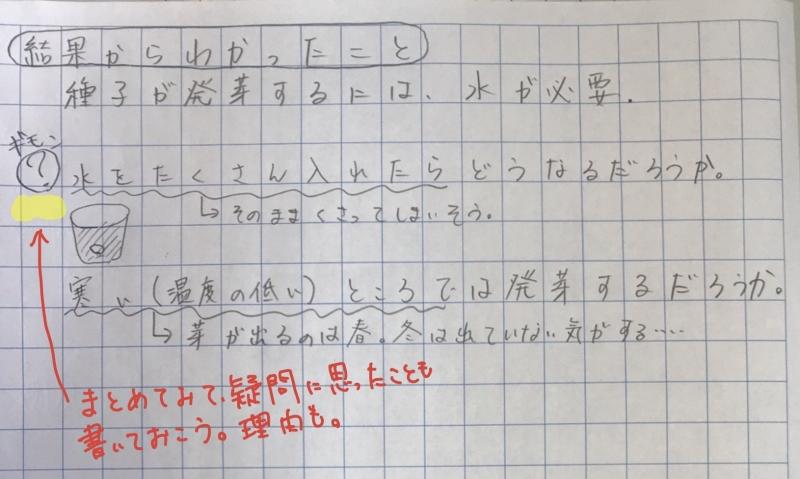 結果からわかったこと
種子が発芽するには、水が必要.
ギモン
? 水をたくさん入れたらどうなるだろうか。
↳そのままくさってしまいそう。
寒い(温度の低い)ところでは発芽するだろうか。
↳芽が出るのは春。冬は出ていない気がする‥‥
まとめてみて、疑問に思ったことも
書いておこう。理由も。